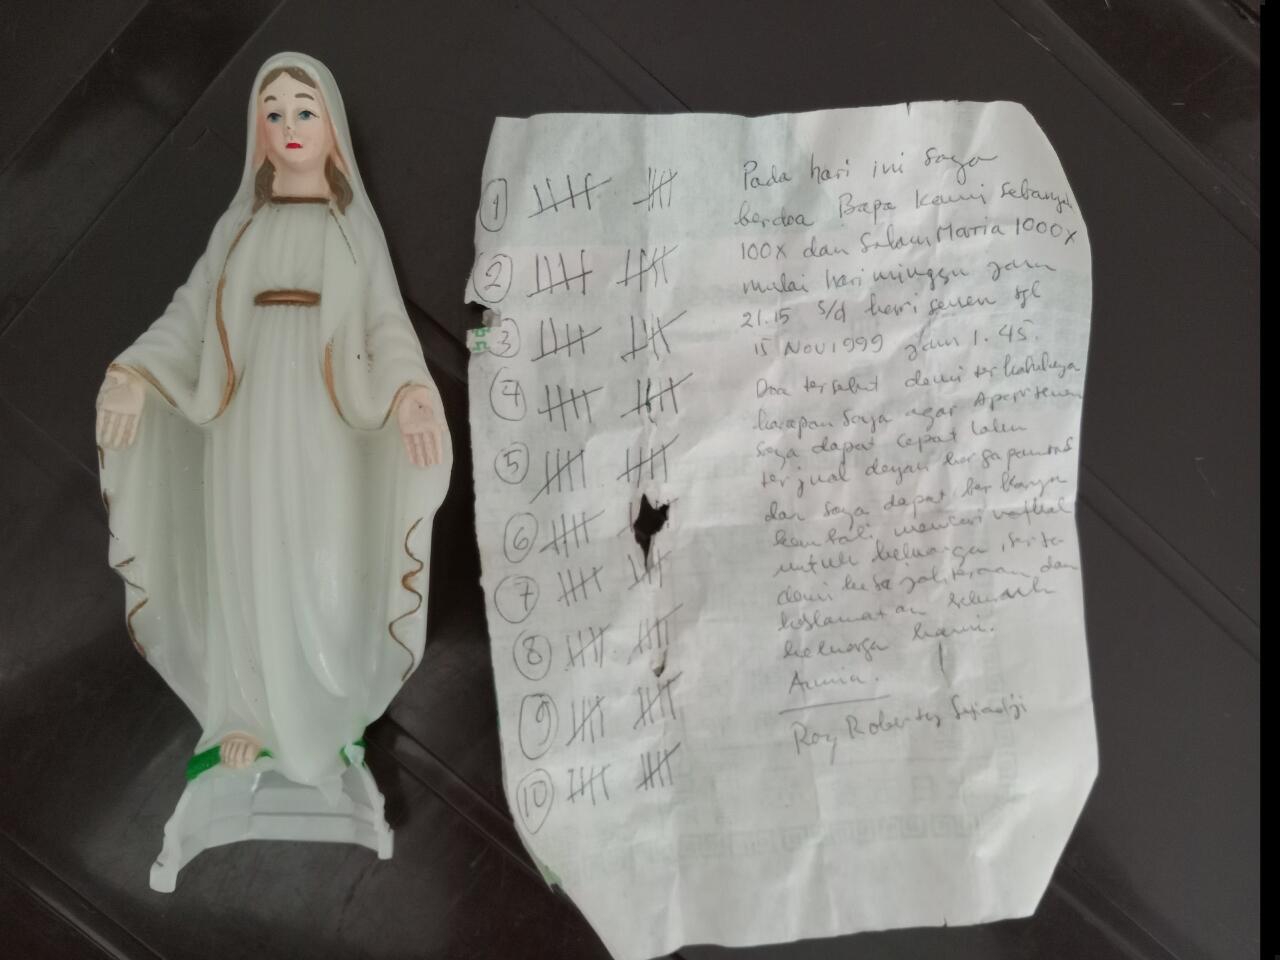 1
2
3
4
5
6
7
8
9
10
Pada hari ini saya
berdoa Bapa Kami sebanyak
100X dan Salam Maria 1000X
mulai hari minggu jam
21.15 s/d hari senen tgl
15 Nov 1999 jam 1.45.
Doa tersebut demi terkabulnya
harapan saya agar Apartemen
saya dapat cepat laku
terjual dengan harga pantas
dan saya dapat
kembali mencari nafkah
untuk keluarga, serta
demi kesejahteraan dan
keslamatan seluruh
keluarga kami.
Amin.
Roy